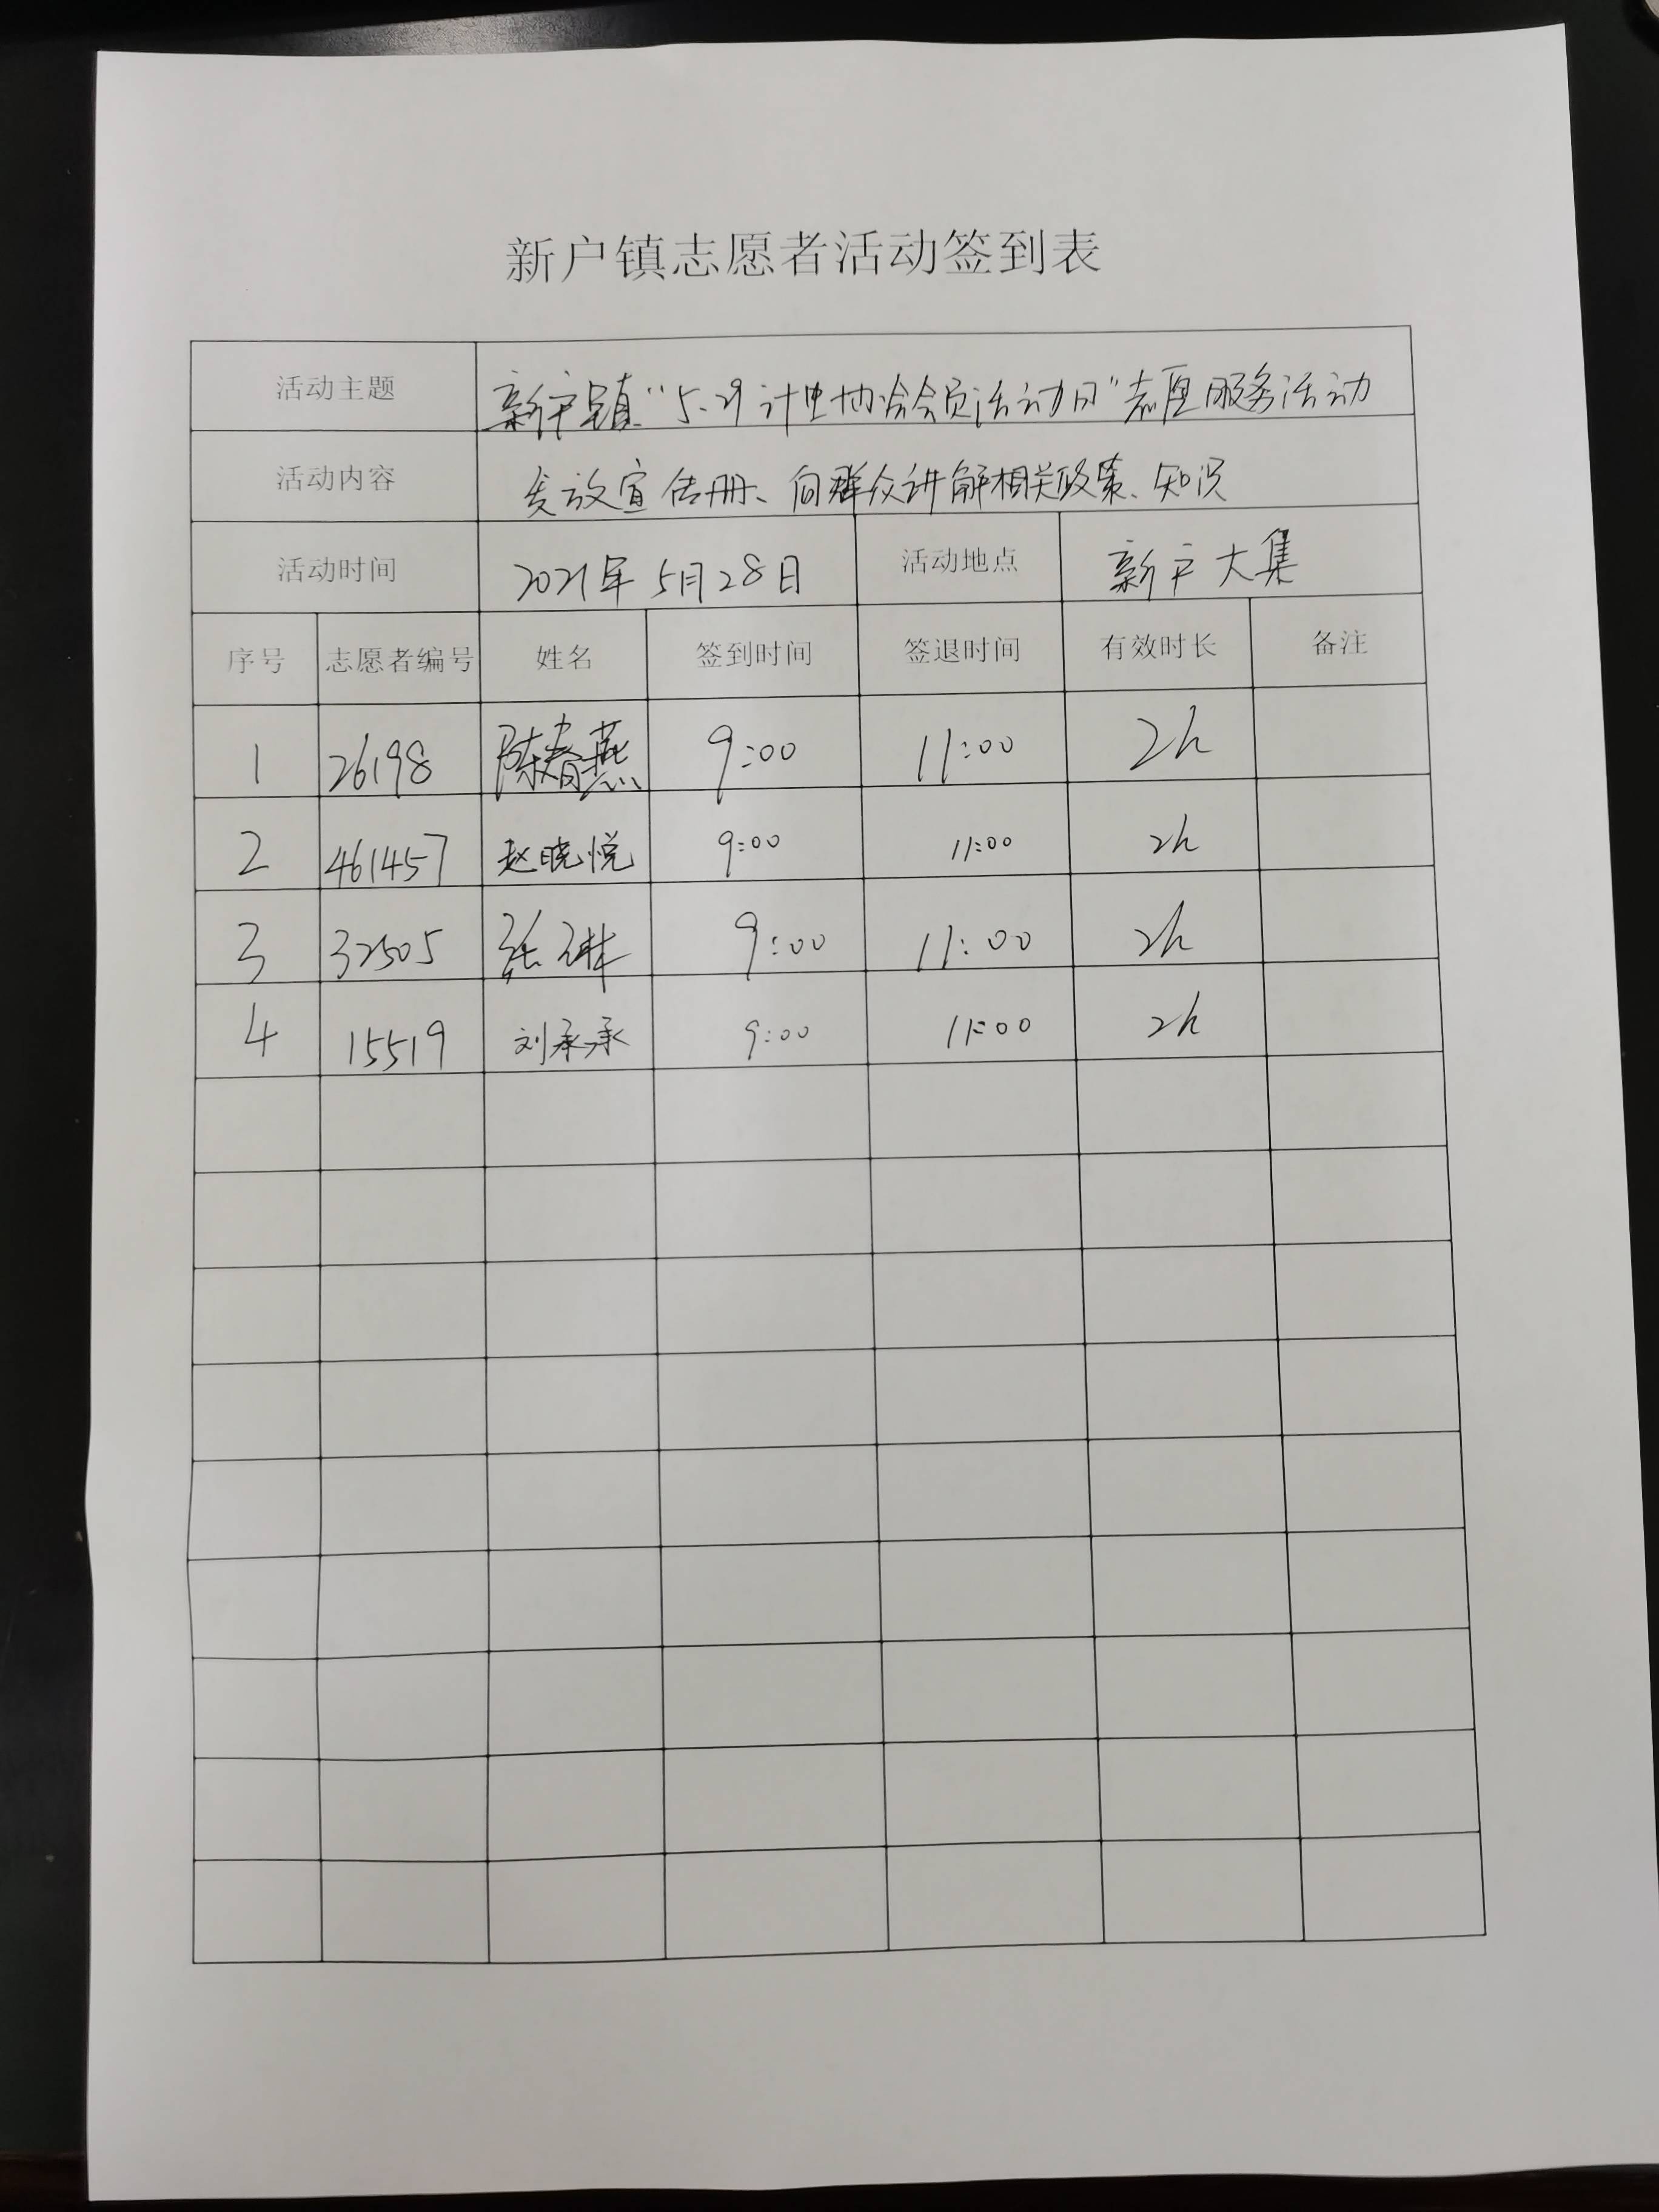 新户镇志愿者活动签到表
活动主题 新户镇“5.29计生协会会员活动日”志愿服务活动
活动内容 发放宣传册、向群众讲解相关政策、知识
活动时间 2021年5月28日 活动地点 新户大集
序号 志愿者编号 姓名 签到时间 签退时间 有效时长 备注
1 26198 陈春燕 9:00 11:00 2h
2 461457 赵晓悦 9:00 11:00 2h
3 32505 张 9:00 11:00 2h
4 15519 刘承承 9:00 11:00 2h